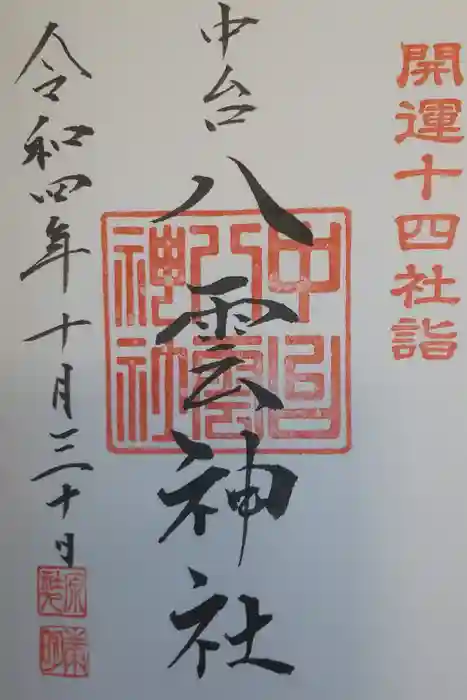 開運十四社詣
中台
八雲神社
中台
八雲
神社
令和四年十月三十日